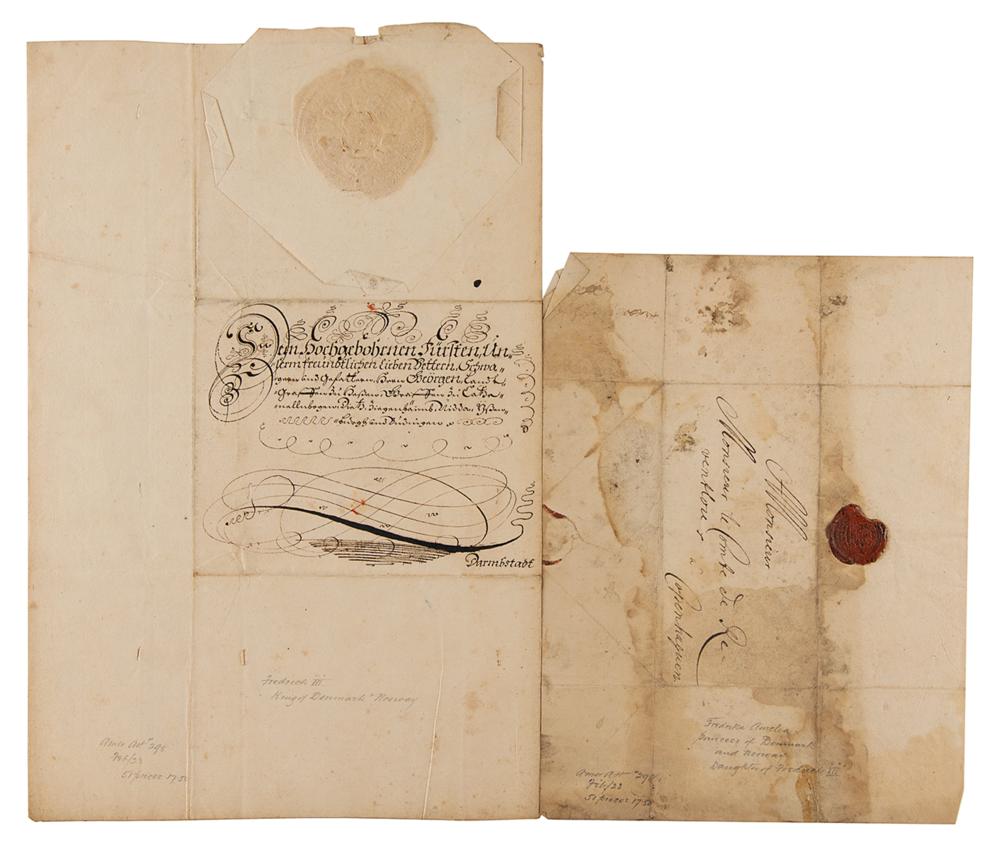 Dem Hochgebohrnen Fürsten, Un„
serm freündtlichen lieben Vettern, Schwa„
gern und Gefattern, Herrn Georgen, Landt„
Graffen zu Heßen, Graffen zu Catze„
nellnbogen, Dietz, Ziegenhainb, Nidda, Ysen„
burgh und Büdingen
Darmbstadt
Fredrech III
King of Denmark & Norway
Amer Art 298
Feb/23
51 pieces 17.50
A Monsieur
Monsieur le Comte de Re„
ventlow,
à
Copenhaguen
Fredrika Amelia
Princess of Denmark
and Norway
Daughter of Fredrech III
Amer Art 298
Feb/23
51 pieces 17.50